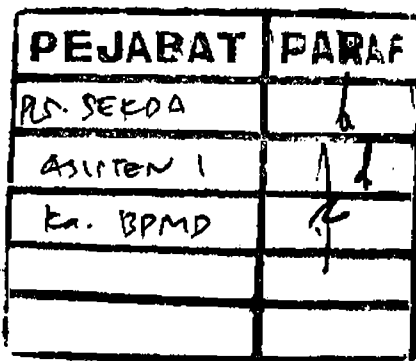 PEJABAT PARAF
Plt. SEKDA
ASISTEN I
Ka. BPMD